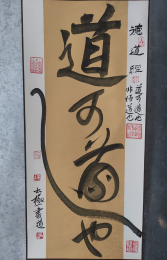 道可道也
德道經
道可道也
非恒道也
太極書道